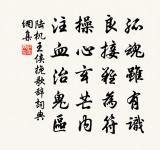 孤魂雖有識
良接難為符
操心玄芒內
注血治鬼區
陆机王侯挽歌辞詞典
網集